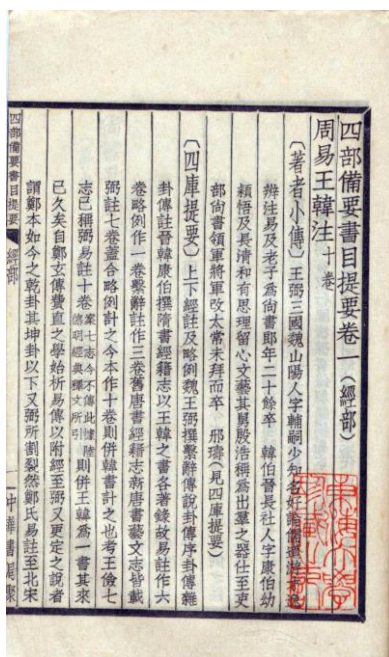 四部備要書目提要卷一（經部）
周易王韓注 十卷
〔著者小傳〕王弼三國魏山陽人字輔嗣少知名好論儒道辭
辨注易及老子爲尚書郎年二十餘卒 韓伯晉長社人字康伯幼
穎悟及長清和有思理留心文藝其舅殷浩稱爲出羣之器仕至吏
部尚書領軍將軍改太常未拜而卒 邢璹（見四庫提要）
〔四庫提要〕上下經註及略例魏王弼撰繫辭傳說卦傳序卦傳雜
卦傳註晉韓康伯撰隋書經籍志以王韓之書各著錄故易註作六
卷略例作一卷繫辭註作三卷舊唐書經籍志新唐書藝文志皆載
弼註七卷蓋合略例計之今本作十卷則併韓書計之也考王儉七
志已稱弼易註十卷案七志今不傳此據陸德明經典釋文所引則併王韓爲一書其來
已久矣自鄭玄傳費直之學始析易傳以附經至弼又更定之說者
謂鄭本如今之乾卦其坤卦以下又弼所割裂然鄭氏易註至北宋
四部備要書目提要 經部 一 中華書局聚
東海大學